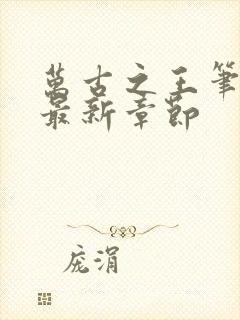 萬古之王筆
最新章節
庞涓